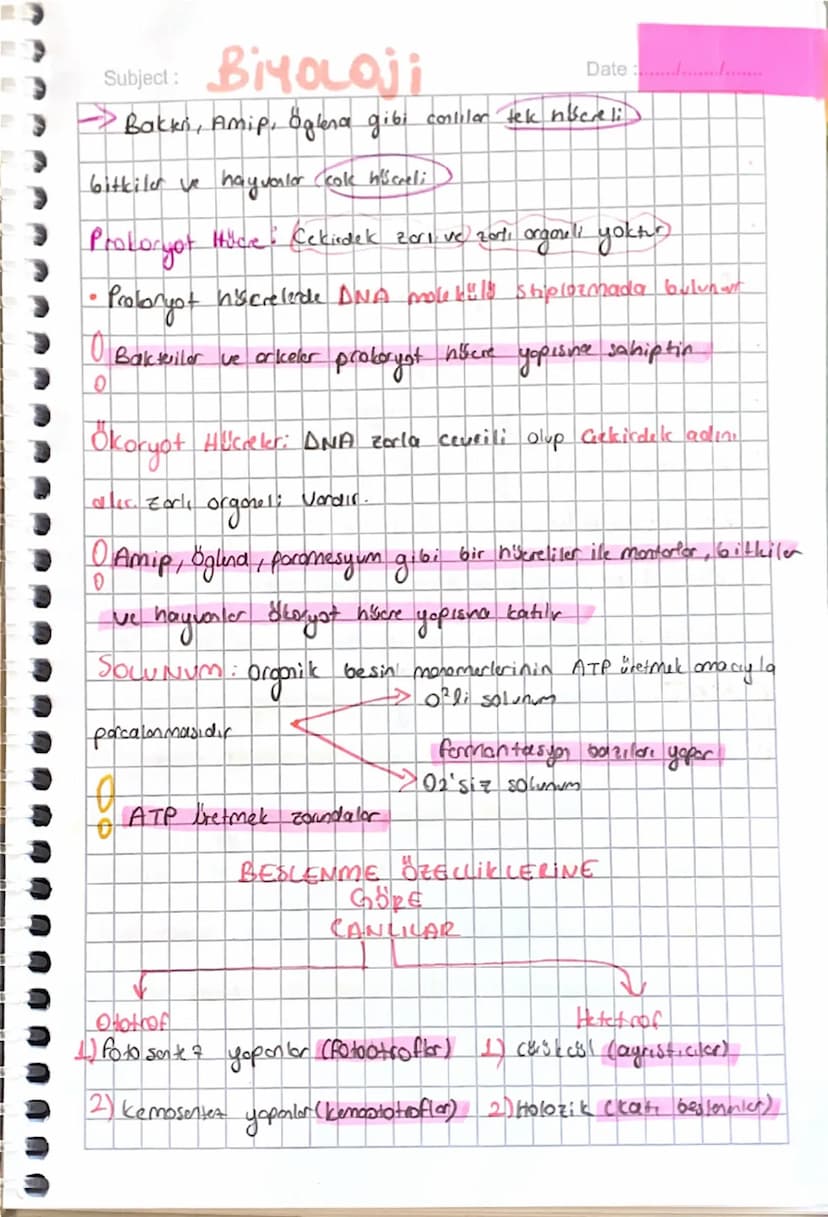 Subject : Biyoloji
Date :....../....../......
→ Bakteri, Amip, Öglena gibi canlılar tek hücreli
bitkiler ve hayvanlar çok hücreli
Prokaryot Hücre: Çekirdek zarı ve zarlı organeli yoktur
• Prokaryot hücrelerde DNA molekülü sitoplazmada bulunur
Bakteriler ve arkeler prokaryot hücre yapısına sahiptir
Ökaryot Hücreler: DNA zarla çevrili olup Çekirdek adını
alır. Zarlı organeli vardır.
Amip, Öglena, paramesyum gibi bir hücreliler ile mantarlar, bitkiler
ve hayvanlar ökaryot hücre yapısına katılır
SOLUNUM: organik besin monomerlerinin ATP üretmek amacıyla
O²li solunum
parçalanmasıdır
fermantasyon bazıları yapar
O2'siz solunum
ATP üretmek zorundalar
BESLENME ÖZELLİKLERİNE
GÖRE
CANLILAR
Ototrof
Hetetrof
1) Fotosentez yapanlar (Fotootroflar) 1) Çürükçül (ayrıştıcılar)
2) Kemosentez yapanlar (kemoototroflar) 2) Holozik (katı beslenmler)